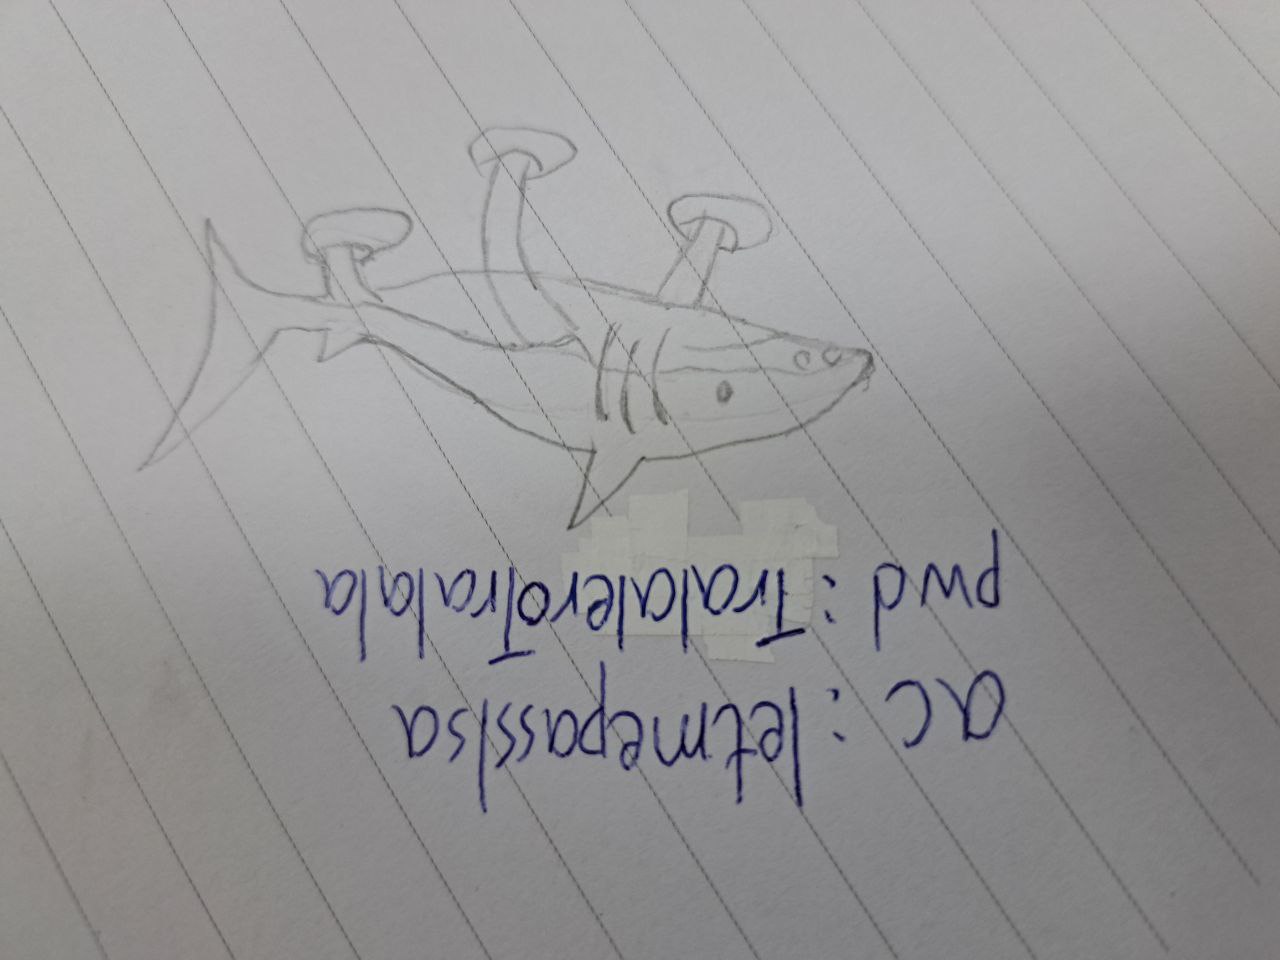 ac : letmepasslsa
pwd : TralaleroTralala